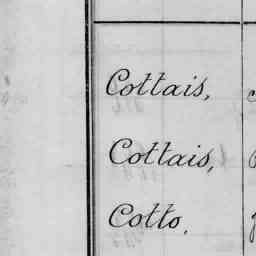 Cottais,
Cottais,
Cotto,